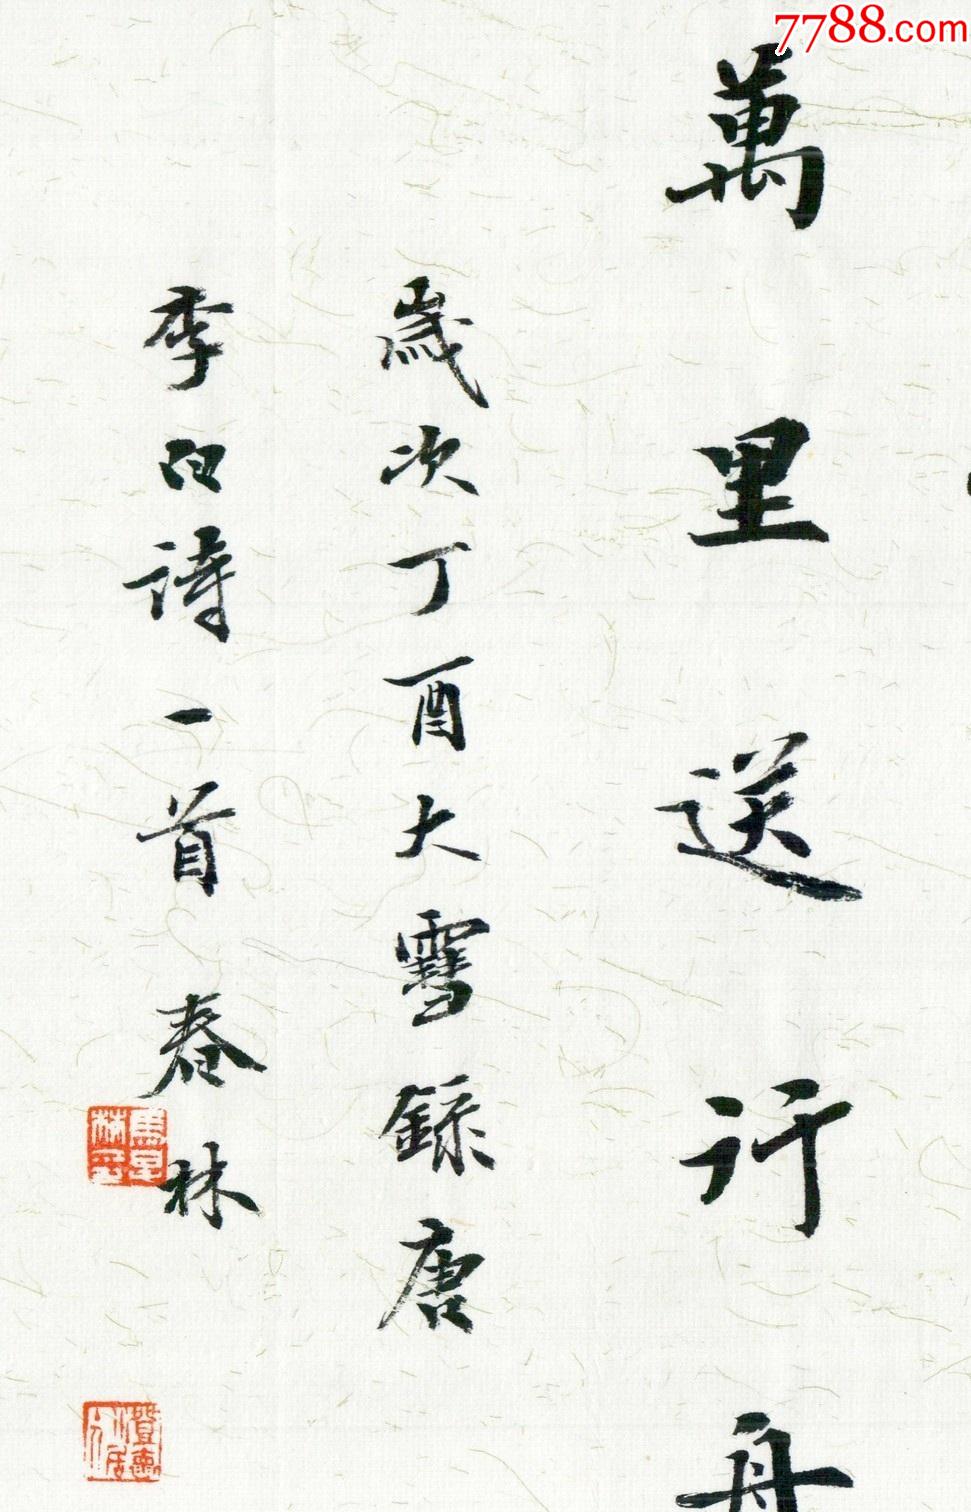 7788.com
萬里送行舟
歲次丁酉大雪錄唐
李白詩一首 春林